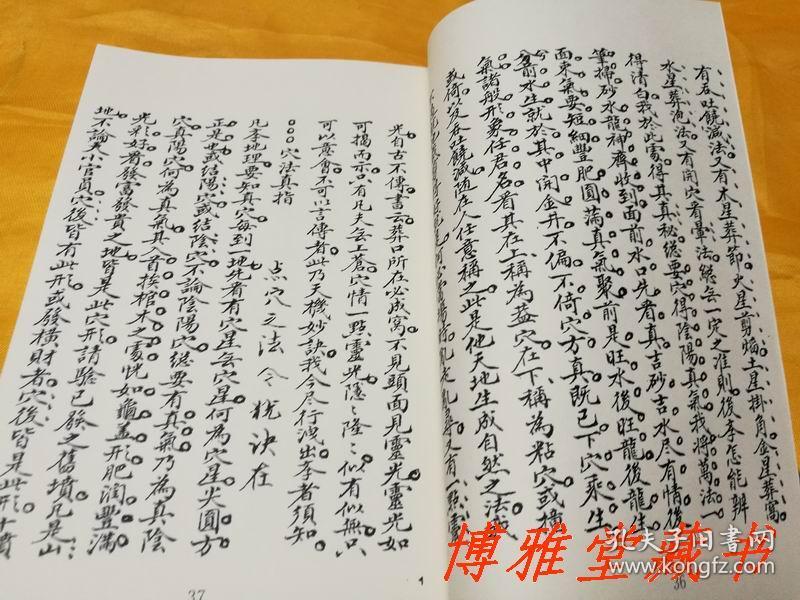 有吞吐饒减法又有木星葬節火星剪熖土星掛角金星葬窩
水星葬泡法又有開穴看暈法緫無一定之准則後李怎能辨
得清白我於此處得其真秘緫要穴得陰陽真氣我將萬法一
筆掃砂水龍神齊收到面前水口先看真吉砂吉水尽有情後
面束氣要短細豐肥圓滿真氣聚前是旺水後旺龍後龍生
前水生就於其中開金井不偏不倚穴方真既已下穴乘生
氣諸般形象任君名看其在上稱為蓋穴在下稱為粘穴或撞
或倚以及吞吐饒减随在人任意稱之此是他天地生成自然之法
又有一點靈
36
光自古不傳書云葬口所在必成窩不見頭面見靈光靈光如
可揭而示只有凡夫無上蒼穴情一點靈光隱隱隆隆似有似無只
可以意會不可以言傳者此乃天機妙訣我今尽行洩出李者須知
穴法真指
点穴之法今挩訣在
凡李地理要知真穴每到一地先看有穴星無穴星何為穴星光圓方
正是也或結陽穴或結陰穴不論陰陽穴緫要有真氣乃為真陰
穴真陽穴何為真氣其人首挨棺木之處恍如龜盖形肥润豐滿
光彩好者發富發貴之地皆是此穴形請驗已發之舊墳凡是山
地不論大小官員穴後皆有此形或發橫財者穴後皆是此形十墳
37
博雅堂藏书
孔夫子旧书网
www.kongfz.com